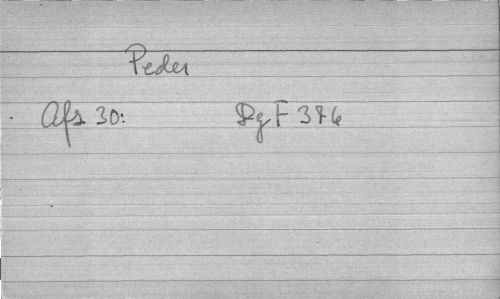 Peder
Afs 30: DgF 376